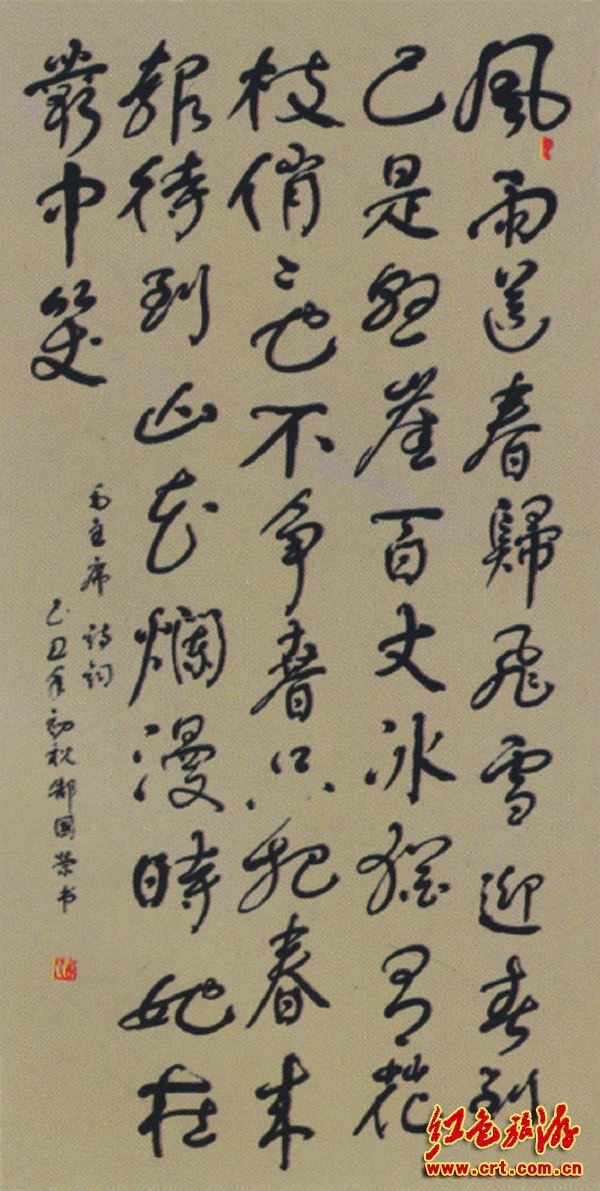 風雨送春歸飛雪迎春到
已是懸崖百丈冰猶有花
枝俏俏也不爭春只把春来
報待到山花爛漫時她在
叢中笑
毛主席诗词
己丑年初秋郜國荣书
红色旅游
www.crt.com.cn